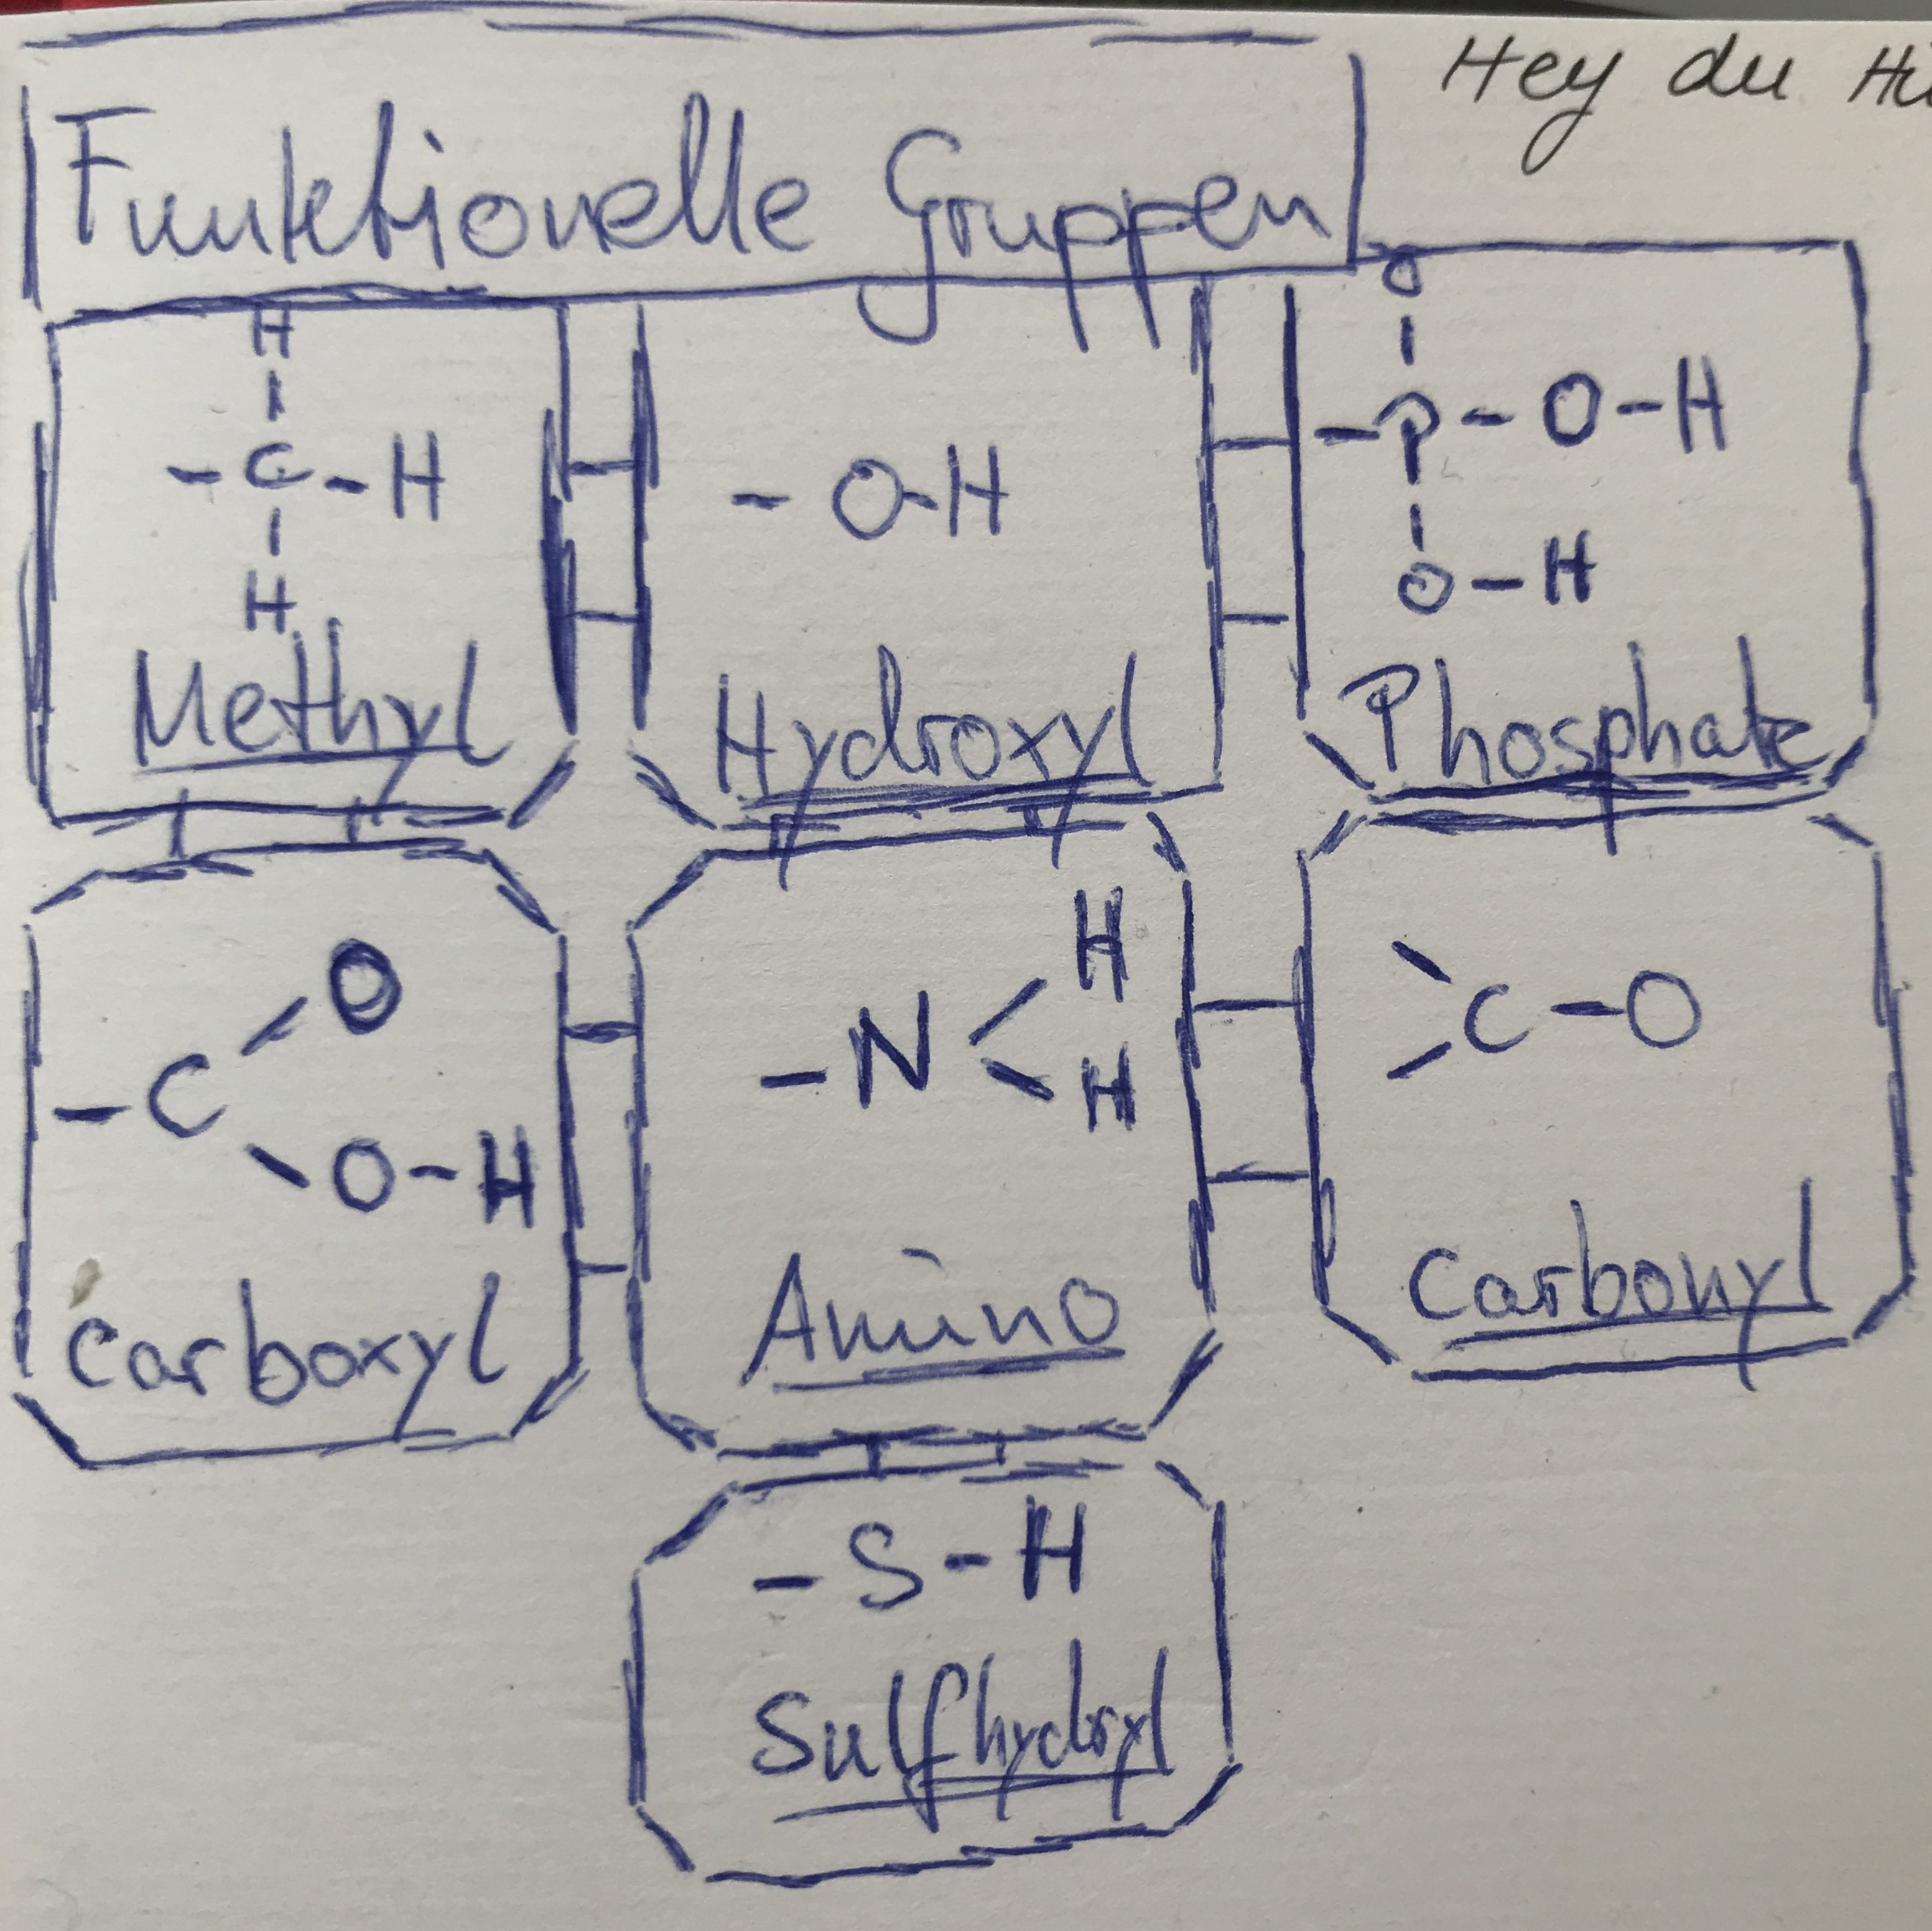 Hey du
Funktionelle Gruppen
H
- C - H
H
Methyl
- O-H
Hydroxyl
O
- P - O - H
O - H
Phosphate
O
- C
O - H
Carboxyl
H
- N
H
Amino
C - O
Carbonyl
- S - H
Sulfhydryl